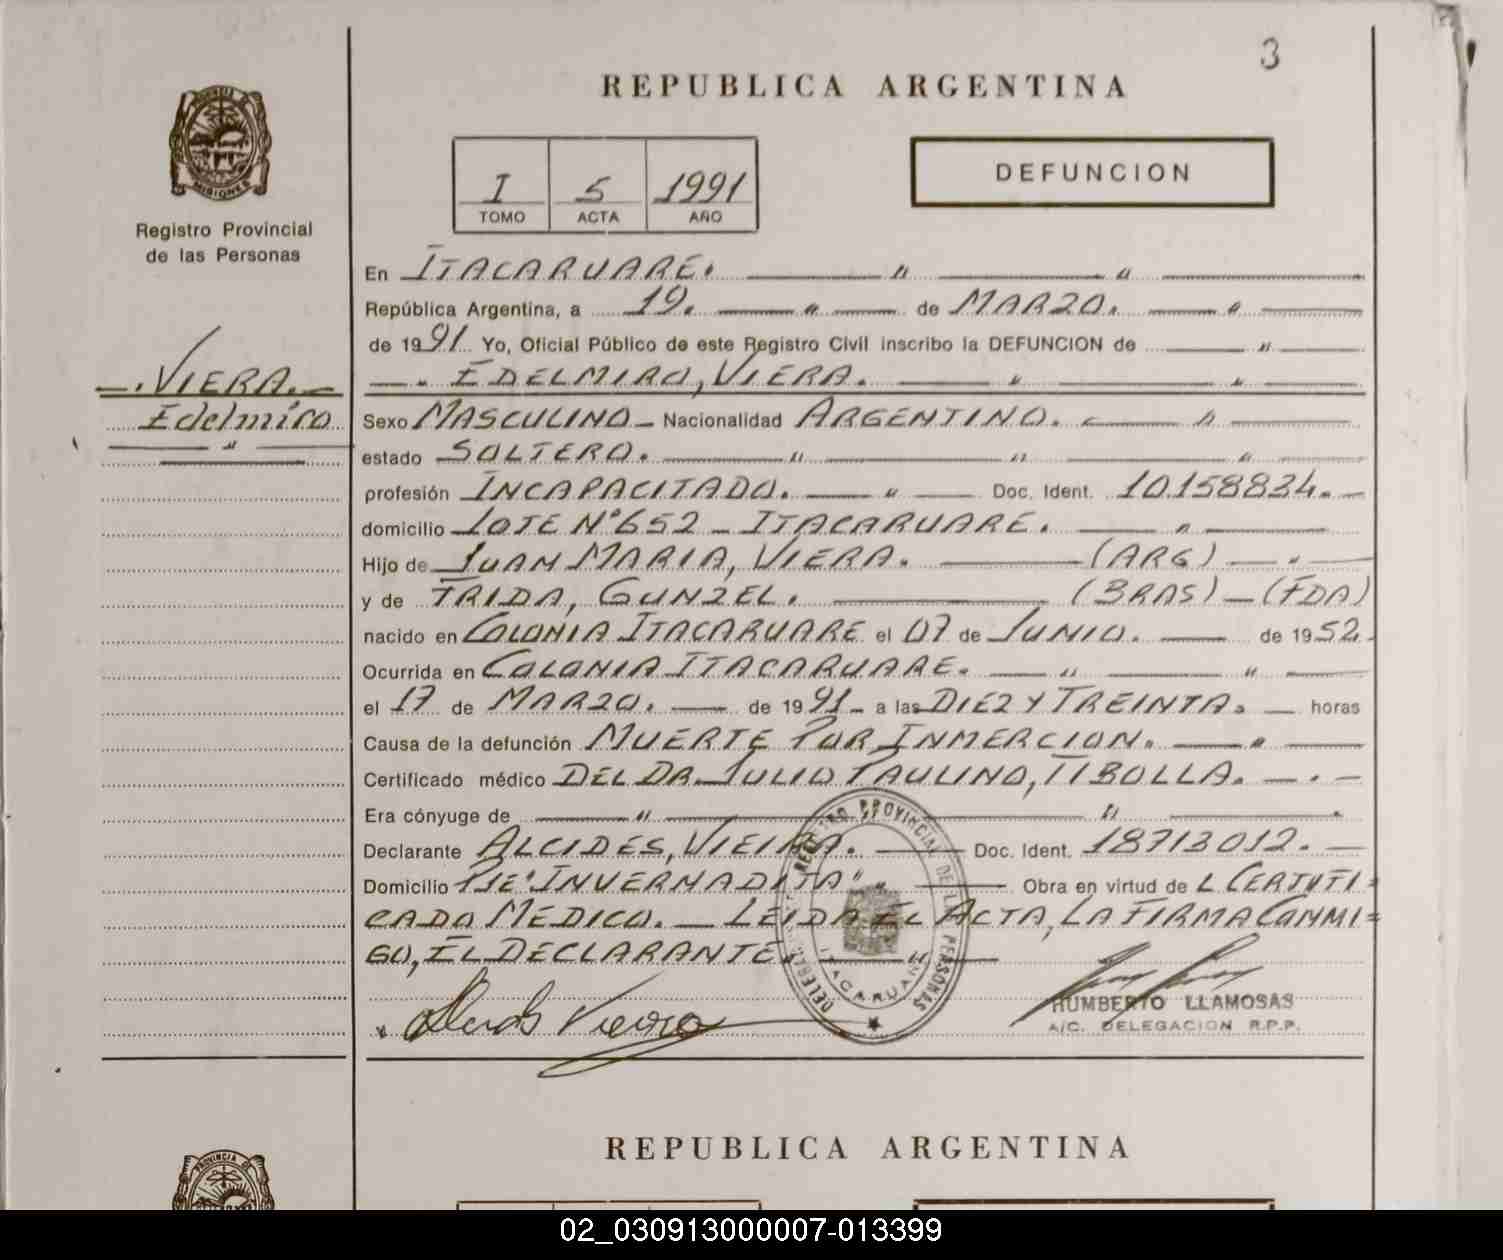 3
REPUBLICA ARGENTINA
PROVINCIA DE
MISIONES
Registro Provincial
de las Personas
I 5 1991
TOMO ACTA AÑO
DEFUNCION
En ITACARUARE. " "
República Argentina, a 19. " de MARZO. "
de 1991. Yo, Oficial Público de este Registro Civil inscribo la DEFUNCION de "
" EDELMIRO, VIERA. " "
VIERA.
Edelmiro
"
Sexo MASCULINO Nacionalidad ARGENTINO. "
estado SOLTERO. " " "
profesión INCAPACITADO. " Doc. Ident. 10.158834.
domicilio LOTE Nº652 - ITACARUARE. "
Hijo de JUAN MARIA, VIERA. (ARG) "
y de FRIDA, GUNZEL. (BRAS) - (FDA)
nacido en COLONIA ITACARUARE el 07 de JUNIO. de 1952.
Ocurrida en COLONIA ITACARUARE. " "
el 17 de MARZO. de 1991 a las DIEZ Y TREINTA. horas
Causa de la defunción MUERTE POR INMERCION. "
Certificado médico DEL DR. JULIO PAULINO, TIBOLLA.
Era cónyuge de " "
Declarante ALCIDES, VIEIRA. Doc. Ident. 18713012.
Domicilio PJE "INVERNADITA" " Obra en virtud de L CERTIFI=
CADO MEDICO. - LEIDA EL ACTA, LA FIRMA CONMI=
GO, EL DECLARANTE. "
REGISTRO PROVINCIAL DE LAS PERSONAS
ITACARUARE
Alcides Vieira
HUMBERTO LLAMOSAS
A/C. DELEGACION R.P.P.
REPUBLICA ARGENTINA
PROVINCIA DE
02_030913000007-013399